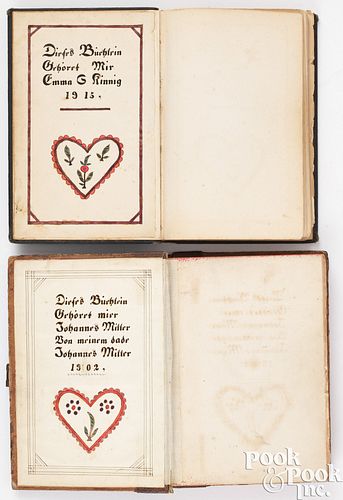 Dieses Büchlein
Gehöret Mir
Emma S Kinnig
1915.
Dieses Büchlein
Gehöret mier
Johannes Miller
Von meinem dade
Johannes Miller
1902.
Pook
& Pook
Inc.